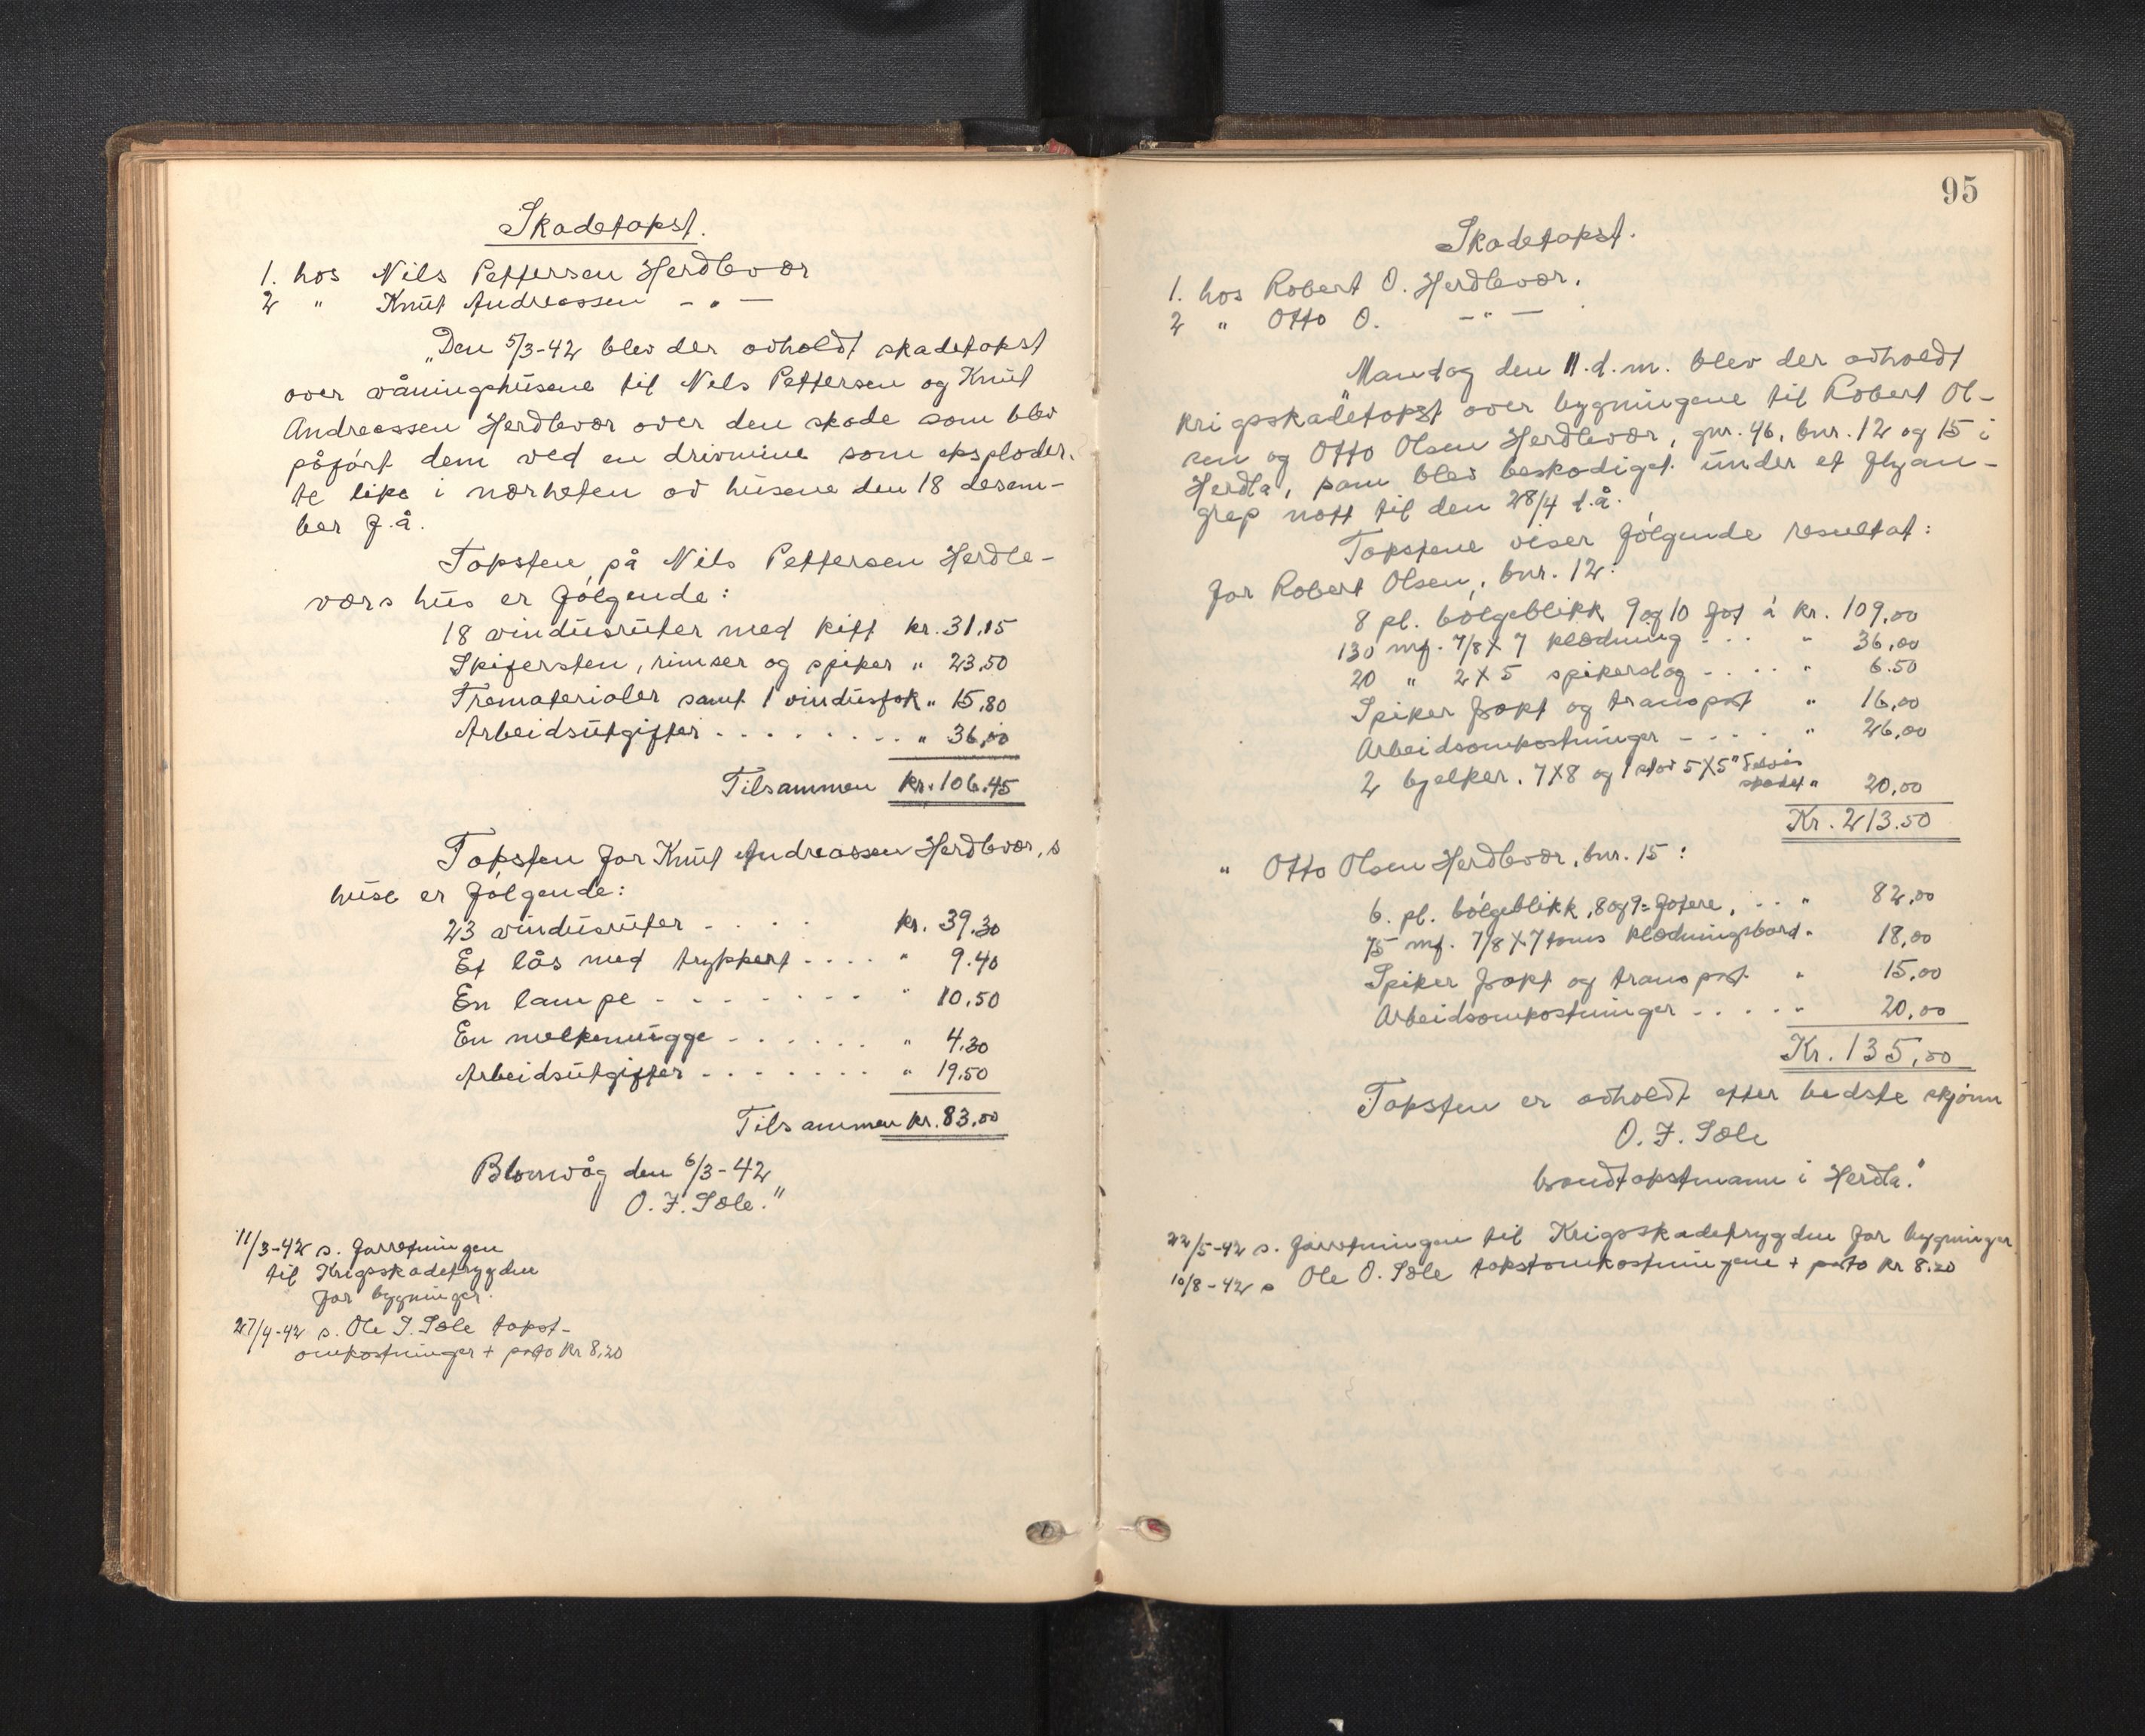 Skadetakst.
1. hos Nils Pettersen Herdlevær
2 " Knut Andreassen - " -
"Den 5/3-42 blev der avholdt skadetakst
over våningshusene til Nils Pettersen og Knut
Andreassen Herdlevær over den skade som blev
påført dem ved en drivmine som eksploder-
te like i nærheten av husene den 18 desem-
ber f.å.
Taksten på Nils Pettersen Herdle-
værs hus er følgende:
18 vindusruter med kitt kr. 31,15
Skifersten, rimser og spiker " 23,50
Trematerialer samt 1 vindusfak " 15,80
Arbeidsutgifter . . . . . . . . . " 36,00
Tilsammen kr. 106.45
Taksten for Knut Andreassen Herdlevær,s
huse er følgende:
23 vindusruter . . . . kr. 39.30
Et lås med trykkert . . . . " 9.40
En lampe - - - - - - - " 10.50
En melkemugge - . . . . . " 4.30
Arbeidsutgifter - . . . . . . " 19.50
Tilsammen kr. 83,00
Blomvåg den 6/3-42
O. F. Sæle."
11/3-42 s. forretningen
til Krigsskadetrygden
for bygninger.
27/4-42 s. Ole I. Sæle takst-
omkostninger + porto kr 8,20
95
Skadetakst.
1. hos Robert O. Herdlevær.
2 " Otto O. - " -
"Mandag den 11. d.m. blev der avholdt
krigsskadetakst over bygningene til Robert Ol-
sen og Otto Olsen Herdlevær, gnr. 46, bnr. 12 og 15 i
Herdla, som blev beskadiget under et flyan-
grep natt til den 28/4 d.å.
Takstene viser følgende resultat:
for Robert Olsen, bnr. 12:
8 pl. bølgeblikk 9 og 10 fot á kr. 109,00
130 mf. 7/8 X 7 klædning - . . " 36,00
20 " 2 X 5 spikerslag - . . . . " 6.50
Spiker frakt og transport " 16,00
Arbeidsomkostninger - - . . . " 26,00
2 bjelker. 7X8 og 1 stav 5X5" delvis
skadet " 20,00
Kr. 213.50
" Otto Olsen Herdlevær, bnr. 15:
6. pl. bølgeblikk, 8 og 9= fotere, . . " 82,00
75 mf. 7/8 X 7 toms klædningsbord " 18,00
Spiker frakt og transport " 15,00
Arbeidsomkostninger . . . . . " 20,00
Kr. 135,00
Taksten er avholdt etter bedste skjønn
O. F. Sæle
branntakstmann i Herdla."
22/5-42 s. forretningen til Krigsskadetrygden for bygninger
10/8-42 s Ole O. Sæle takstomkostningene + porto kr 8.20